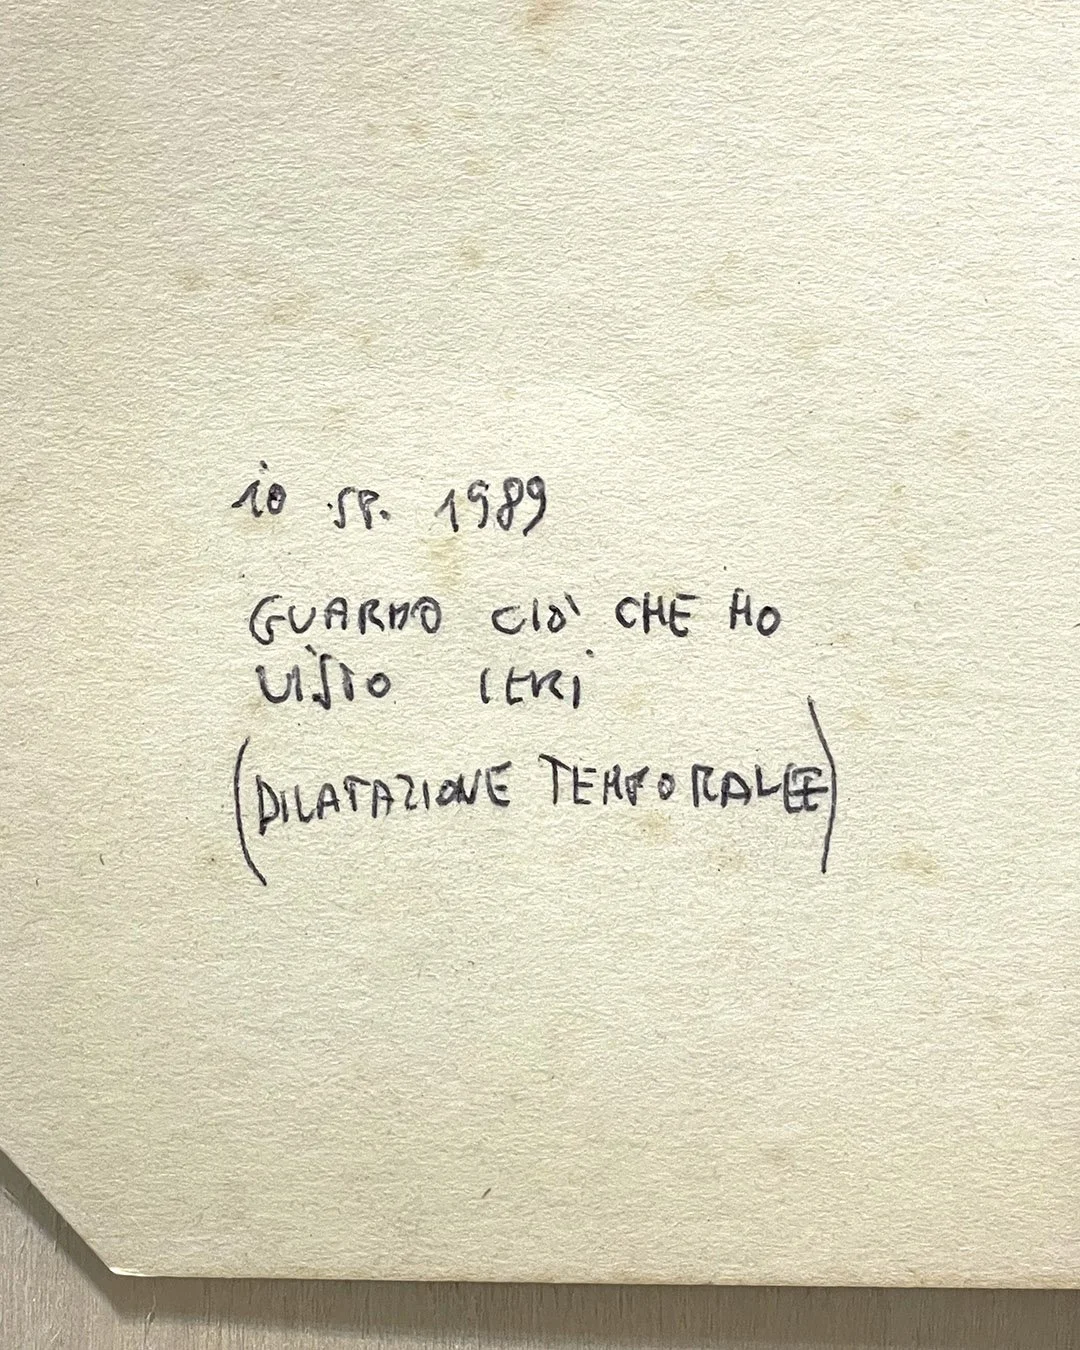 io sp. 1989
GUARDO CIÒ CHE HO
VISTO IERI
(DILATAZIONE TEMPORALE)